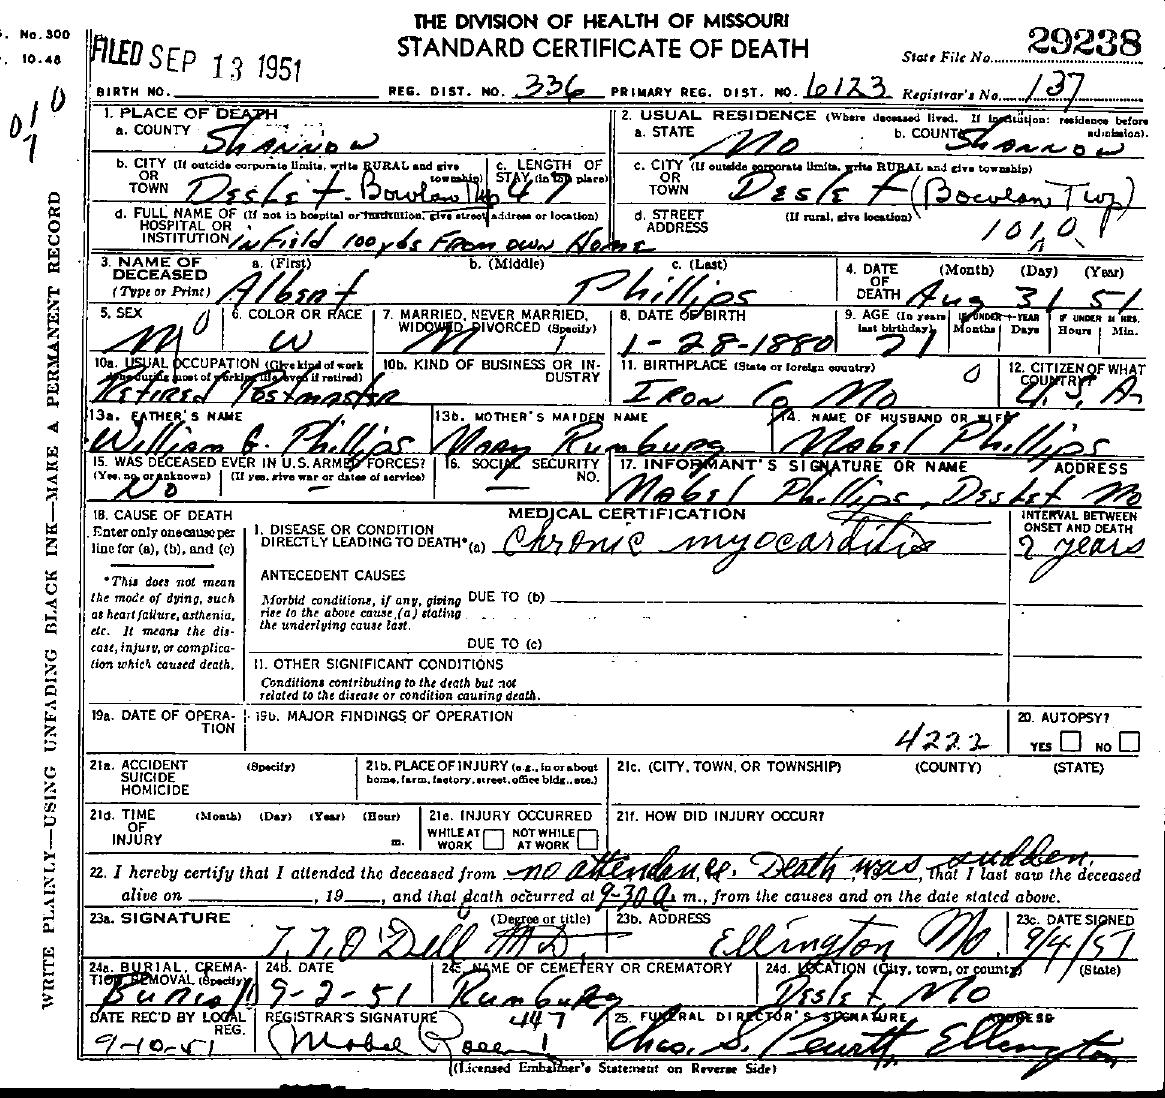 THE DIVISION OF HEALTH OF MISSOURI
STANDARD CERTIFICATE OF DEATH
S. No. 300
. 10-48
FILED SEP 13 1951
State File No. 29238
BIRTH NO. REG. DIST. NO. 336 PRIMARY REG. DIST. NO. 6123 Registrar's No. 137
010
7
1. PLACE OF DEATH
a. COUNTY Shannon
2. USUAL RESIDENCE (Where deceased lived. If institution: residence before admission).
a. STATE Mo b. COUNTY Shannon
b. CITY (If outside corporate limits, write RURAL and give township) OR TOWN Deslet - Bowlan Twp
c. LENGTH OF STAY (in this place) 47
c. CITY (If outside corporate limits, write RURAL and give township) OR TOWN Deslet (Bowlan Twp)
d. FULL NAME OF (If not in hospital or institution, give street address or location) HOSPITAL OR INSTITUTION In Field 100 yds From own Home
d. STREET ADDRESS (If rural, give location) 1010
3. NAME OF DECEASED (Type or Print) a. (First) b. (Middle) c. (Last)
Albert Phillips
4. DATE OF DEATH (Month) (Day) (Year)
Aug 31 51
5. SEX M 0
6. COLOR OR RACE W
7. MARRIED, NEVER MARRIED, WIDOWED, DIVORCED (Specify) M 1
8. DATE OF BIRTH 1-28-1880
9. AGE (In years last birthday) 71 IF UNDER 1 YEAR Months Days IF UNDER 24 HRS. Hours Min.
10a. USUAL OCCUPATION (Give kind of work done during most of working life, even if retired) Retired Postmaster
10b. KIND OF BUSINESS OR INDUSTRY
11. BIRTHPLACE (State or foreign country) Iron Co Mo 0
12. CITIZEN OF WHAT COUNTRY? U.S.A.
13a. FATHER'S NAME William G. Phillips
13b. MOTHER'S MAIDEN NAME Mary Rumburg
14. NAME OF HUSBAND OR WIFE Mabel Phillips
15. WAS DECEASED EVER IN U.S. ARMED FORCES? (Yes, no, or unknown) (If yes, give war or dates of service) No –
16. SOCIAL SECURITY NO. –
17. INFORMANT'S SIGNATURE OR NAME ADDRESS
Mabel Phillips, Deslet Mo
18. CAUSE OF DEATH
Enter only one cause per line for (a), (b), and (c)
*This does not mean the mode of dying, such as heart failure, asthenia, etc. It means the disease, injury, or complication which caused death.
MEDICAL CERTIFICATION
INTERVAL BETWEEN ONSET AND DEATH
I. DISEASE OR CONDITION DIRECTLY LEADING TO DEATH* (a) Chronic myocarditis 2 years
ANTECEDENT CAUSES
Morbid conditions, if any, giving rise to the above cause (a) stating the underlying cause last.
DUE TO (b)
DUE TO (c)
II. OTHER SIGNIFICANT CONDITIONS
Conditions contributing to the death but not related to the disease or condition causing death.
19a. DATE OF OPERATION
19b. MAJOR FINDINGS OF OPERATION
4222
20. AUTOPSY?
YES NO
21a. ACCIDENT SUICIDE HOMICIDE (Specify)
21b. PLACE OF INJURY (e.g., in or about home, farm, factory, street, office bldg., etc.)
21c. (CITY, TOWN, OR TOWNSHIP) (COUNTY) (STATE)
21d. TIME OF INJURY (Month) (Day) (Year) (Hour) m.
21e. INJURY OCCURRED WHILE AT WORK NOT WHILE AT WORK
21f. HOW DID INJURY OCCUR?
22. I hereby certify that I attended the deceased from no attendance. Death was sudden, that I last saw the deceased
alive on , 19 , and that death occurred at 9-30 A m., from the causes and on the date stated above.
23a. SIGNATURE (Degree or title) T. T. O'Dell MD
23b. ADDRESS Ellington Mo.
23c. DATE SIGNED 9/4/51
24a. BURIAL, CREMATION, REMOVAL (Specify) Burial
24b. DATE 9-2-51
24c. NAME OF CEMETERY OR CREMATORY Rumburg
24d. LOCATION (City, town, or county) (State) Deslet, Mo
DATE REC'D BY LOCAL REG. 9-10-51
REGISTRAR'S SIGNATURE 447 Mabel
25. FUNERAL DIRECTOR'S SIGNATURE ADDRESS
Chas. S. Ellington
(Licensed Embalmer's Statement on Reverse Side)
WRITE PLAINLY—USING UNFADING BLACK INK—MAKE A PERMANENT RECORD